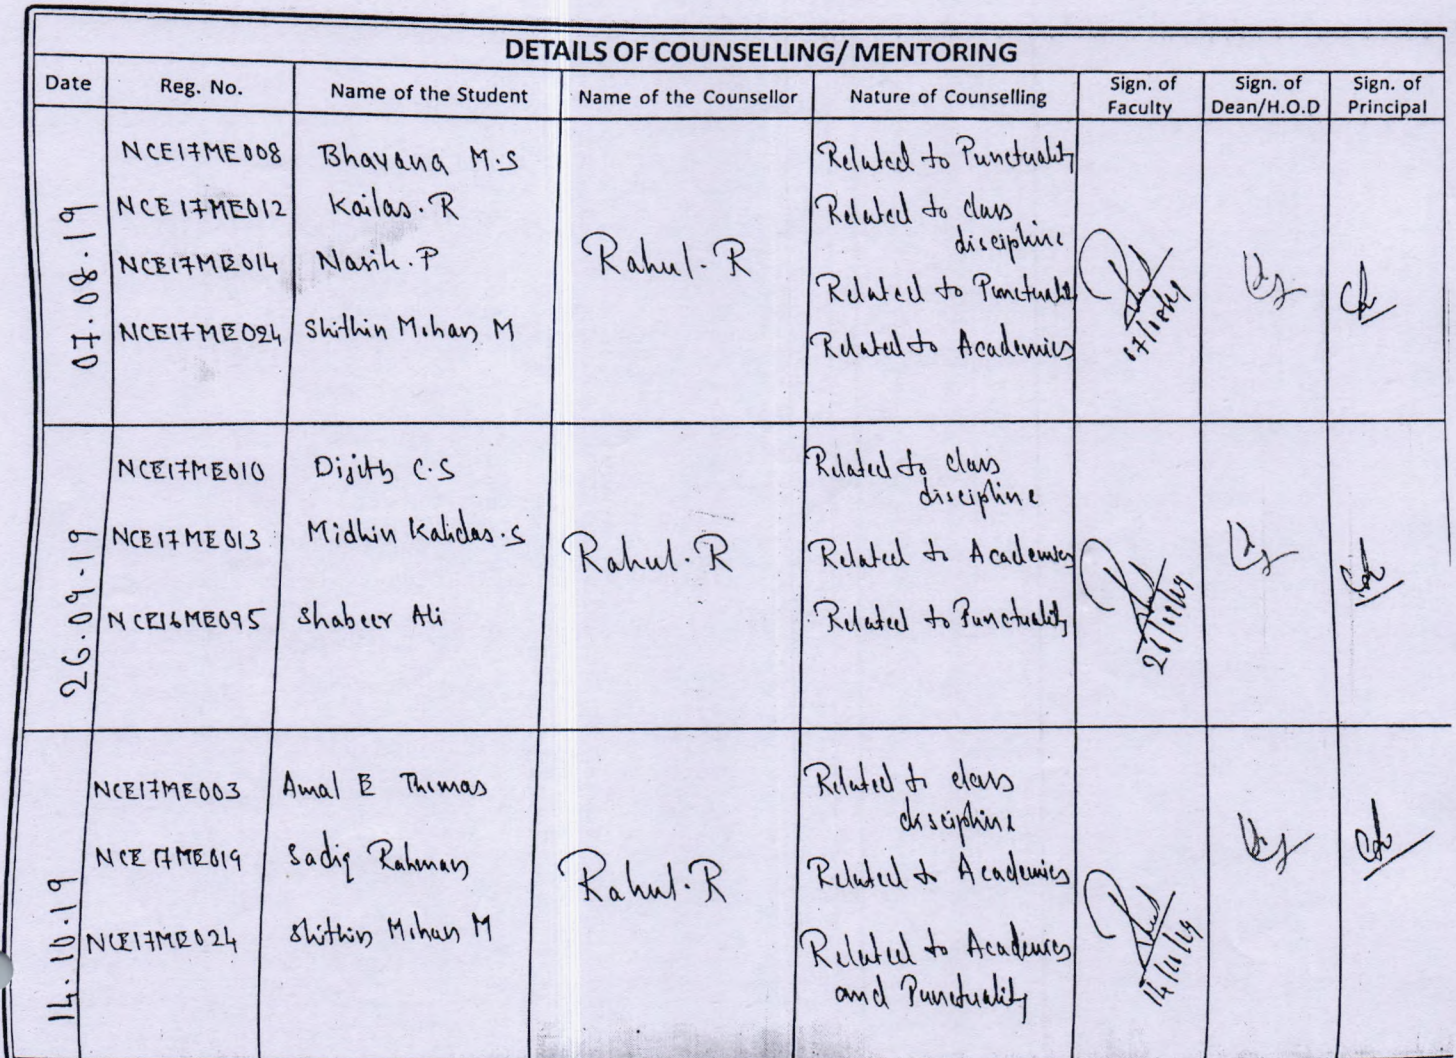 DETAILS OF COUNSELLING/ MENTORING
Date Reg. No. Name of the Student Name of the Counsellor Nature of Counselling Sign. of Faculty Sign. of Dean/H.O.D Sign. of Principal
07.08.19
NCE17ME008 Bhavana M.S Related to Punctuality
NCE17ME012 Kailas.R Related to class
discipline
Rahul.R
NCE17ME014 Nasih.P Related to Punctuality
NCE17ME024 Shithin Mohan M Related to Academics
26.09.19
NCE17ME010 Dijith C.S Related to class
discipline
NCE17ME013 Midhin Kalidas.S Rahul.R Related to Academics
NCE16ME095 Shabeer Ali Related to Punctuality
14.10.19
NCE17ME003 Amal E Thomas Related to class
discipline
NCE17ME019 Sadiq Rahman Rahul.R Related to Academics
NCE17ME024 Shithin Mohan M Related to Academics
and Punctuality